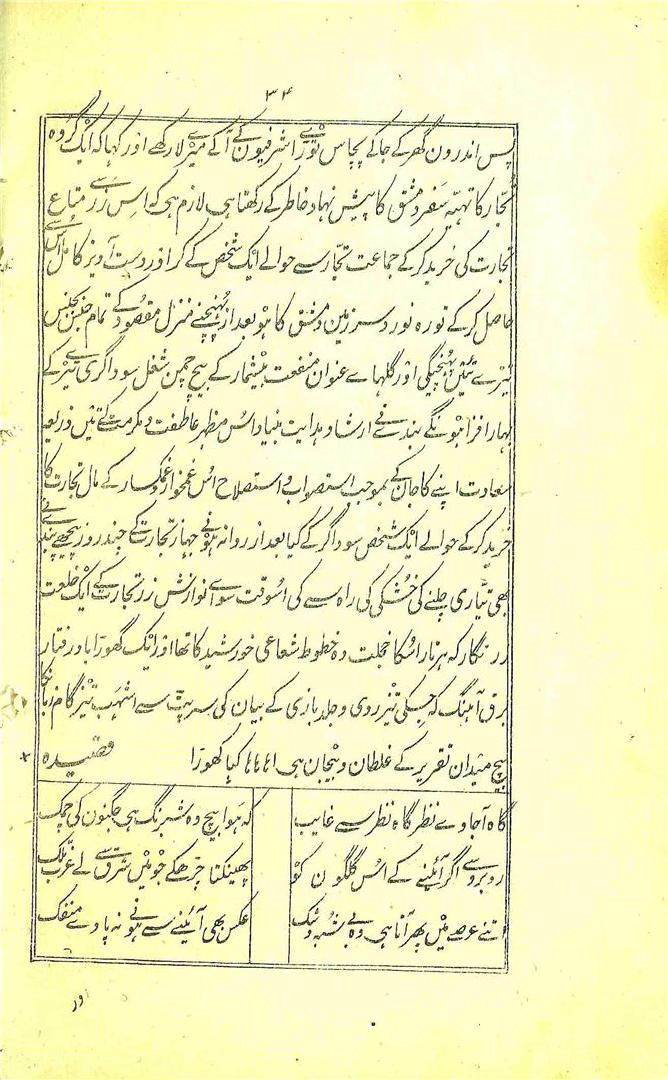 ۳۴
پس اندرون گھر کے جا کے پچاس توڑے اشرفیون کے آگے میرے لا رکھے اور کہا کہ ایک گروہ
تجار کا تہیہ سفر دمشق کا پیش نہاد خاطر کے رکھتا ہی لازم ہی کہ اس زر سے متاع
تجارت کی خرید کر کے جماعت تجار سے حوالے ایک شخص کے کر اور دست آویز کامل اس سے
حاصل کر کے تو رہ نورد سرزمین دمشق کا ہو بعد از پہنچنے منزل مقصود کے تمام جنس بجنس
تیرے تئیں پہنچیگی اور گلہاے عنوان منفعت بیشمار کے بیچ چمن شغل سوداگری تیرے کے
بہار افزا ہونگے بندے نے ارشاد ہدایت بنیاد اس مظہر عاطفت و مکرمت کے تئیں ذریعہ
سعادت اپنے کا جان کے بموجب استصواب و استصلاح اس غمخوار غمگسار کے مال تجارت کا
خرید کر کے حوالے ایک شخص سوداگر کے کیا بعد از روانہ ہونے جہاز تجارت کے چند روز پیچھے بندے نے
بھی تیاری چلنے کی خشکی کی راہ سے کی اسوقت سواے نوازش زر تجارت کے ایک خلعت
زرنگار کہ ہر تار اسکا خجلت دہ خطوط شعاعی خورشید کا تھا اور ایک گھوڑا باد رفتار
برق آہنگ کہ جسکی تیز روی و جلد بازی کے بیان کی سرپٹ سے اشہب تیز گام زبان کا
بیچ میدان تقریر کے غلطان و پیجان ہی اہاہاہا کیا گھوڑا قصیدہ
گاہ آجاوے نظر گاہ نظر سے غایب کہ ہوا بیچ وہ شبرنگ ہی جگنون کی چمک
روبرو سے اگر آئینے کے اس گلگون کو پھینکتا چڑھکے جو میں شرق سے لے غرب تلک
اتنے عرصے میں پھر آتا ہی وہ بے شبہہ و شک عکس بھی آئینے سے ہونے نہ پاوے منفک
اور